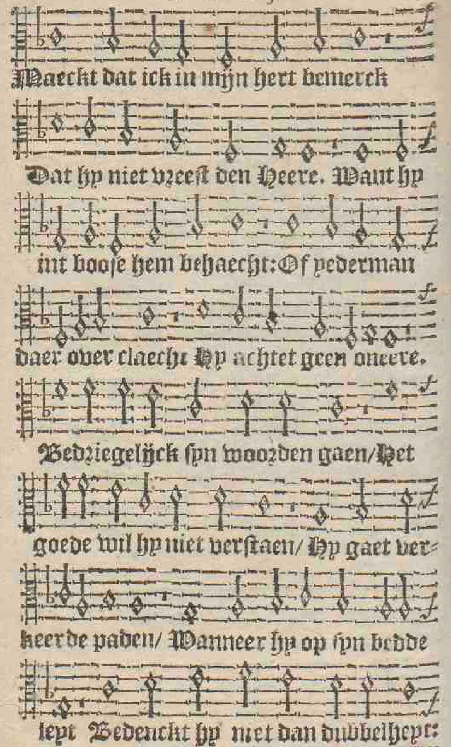 Maeckt dat ick in mijn hert bemerck
Dat hy niet vreest den Heere. Want hy
int boose hem behaecht: Of yederman
daer over claecht Hy achtet geen oneere.
Bedriegelijck syn woorden gaen/ Het
goede wil hy niet verstaen/ Hy gaet ver-
keerde paden/ Wanneer hy op syn bedde
leyt Bedenckt hy niet dan dubbelheyt: